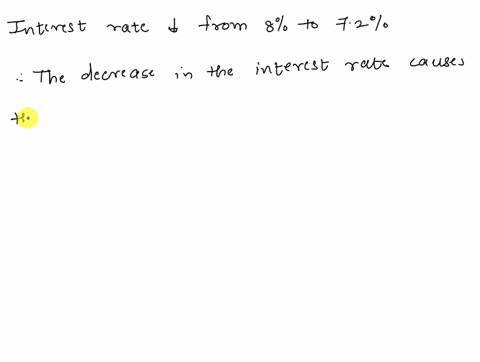 Interest rate ↓ from 8% to 7.2%
∴ The decrease in the interest rate causes